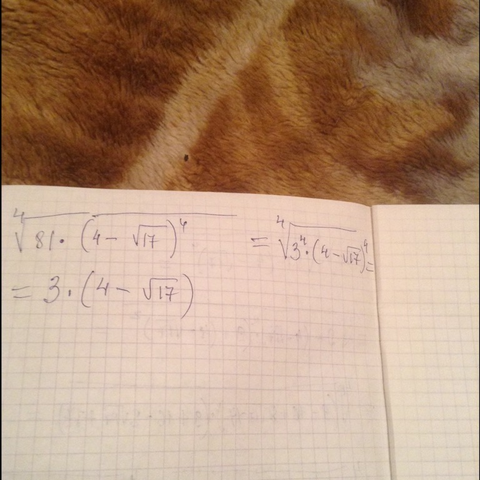 ⁴√(81·(4−√17)⁴) = ⁴√(3⁴·(4−√17)⁴) =
= 3·(4−√17)